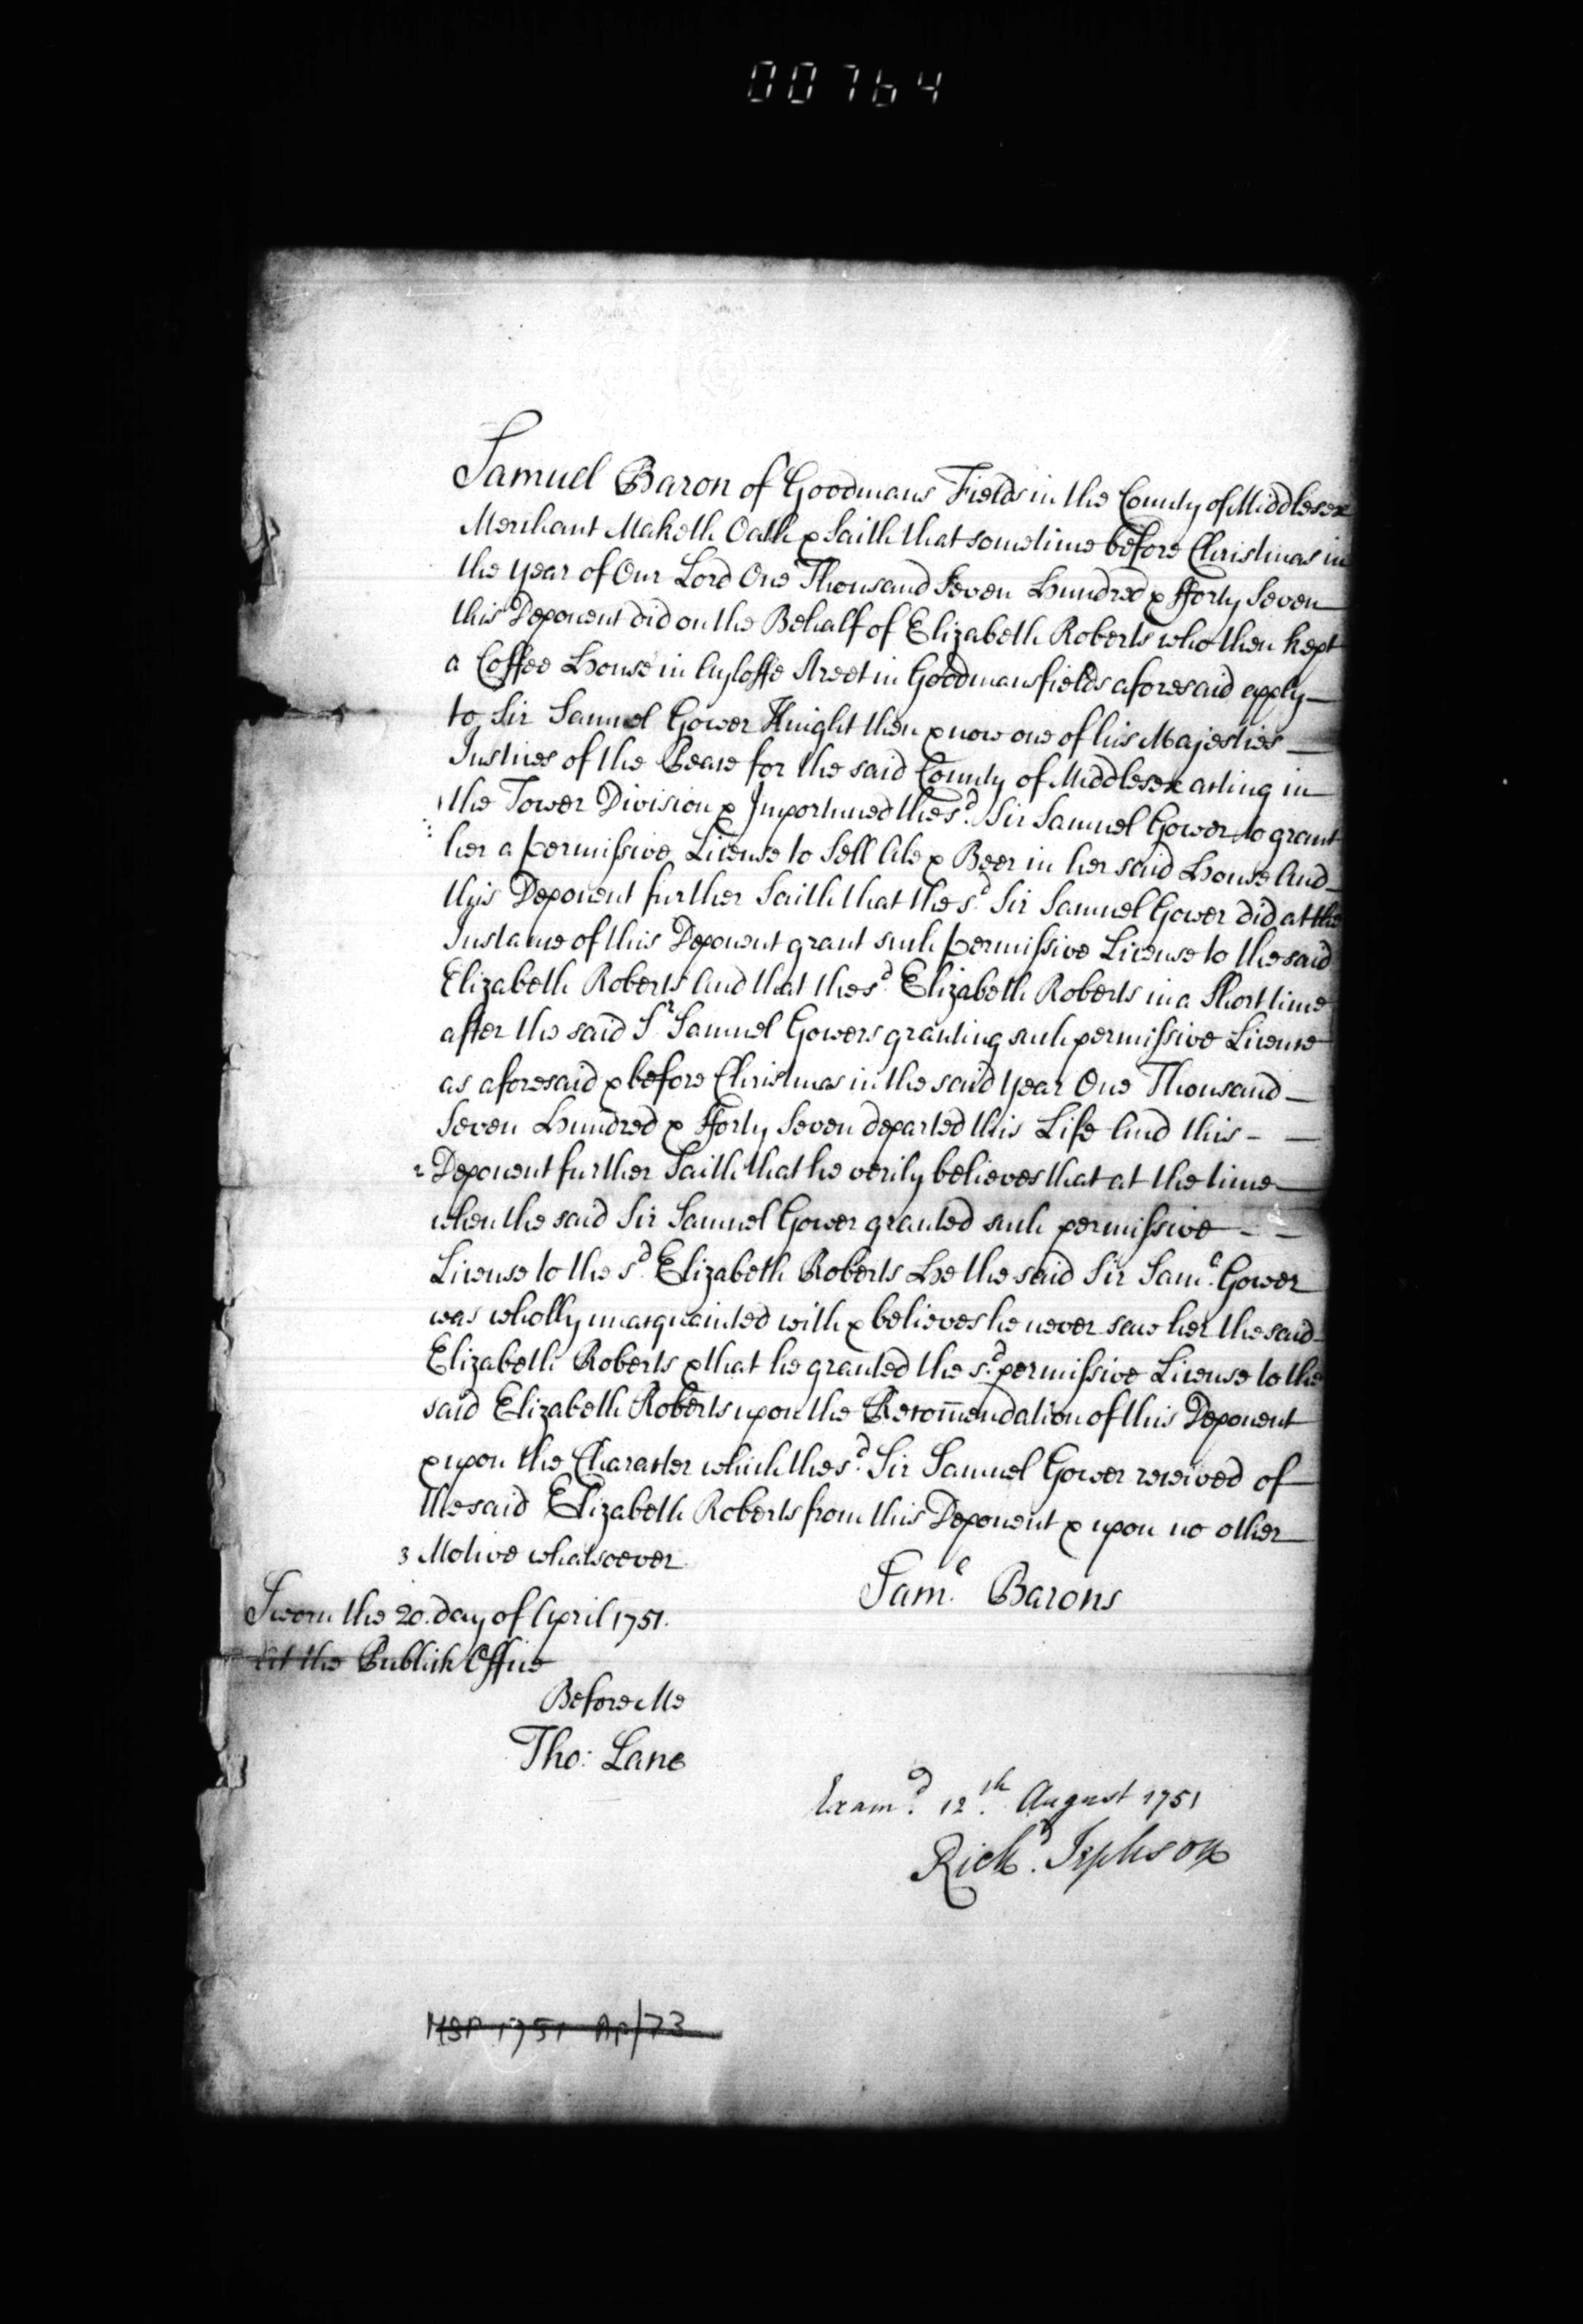 00764
Samuel Baron of Goodmans Fields in the County of Middlesex
Merchant Maketh Oath & Saith that sometime before Christmas in
the year of Our Lord One Thousand Seven Hundred & fforty Seven
this Deponent did on the Behalf of Elizabeth Roberts who then kept
a Coffee House in Ayloffe Street in Goodmansfields aforesaid apply
to Sir Samuel Gower Knight then & now one of his Majesties
Justices of the Peace for the said County of Middlesex acting in
1 the Tower Division & Importuned the sd. Sir Samuel Gower to grant
her a permissive License to Sell Ale & Beer in her said House And
this Deponent further Saith that the sd. Sir Samuel Gower did at the
Instance of this Deponent grant such permissive License to the said
Elizabeth Roberts And that the sd. Elizabeth Roberts in a Short time
after the said Sr. Samuel Gowers granting such permissive License
as aforesaid & before Christmas in the said year One Thousand
Seven Hundred & fforty Seven departed this Life And this
2 Deponent further Saith that he verily believes that at the time
when the said Sir Samuel Gower granted such permissive
License to the sd. Elizabeth Roberts He the said Sir Saml. Gower
was wholly unacquainted with & believes he never saw her the said
Elizabeth Roberts & that he granted the sd. permissive License to the
said Elizabeth Roberts upon the Recom̅endation of this Deponent
& upon the Character which the sd. Sir Samuel Gower received of
the said Elizabeth Roberts from this Deponent & upon no other
3 Motive whatsoever
Saml. Barons
Sworn the 20. day of April 1751.
At the Publick Office
Before Me
Tho: Lane
Examd. 12th. August 1751
Richd. Jephson
MSP 1751 Ap/73